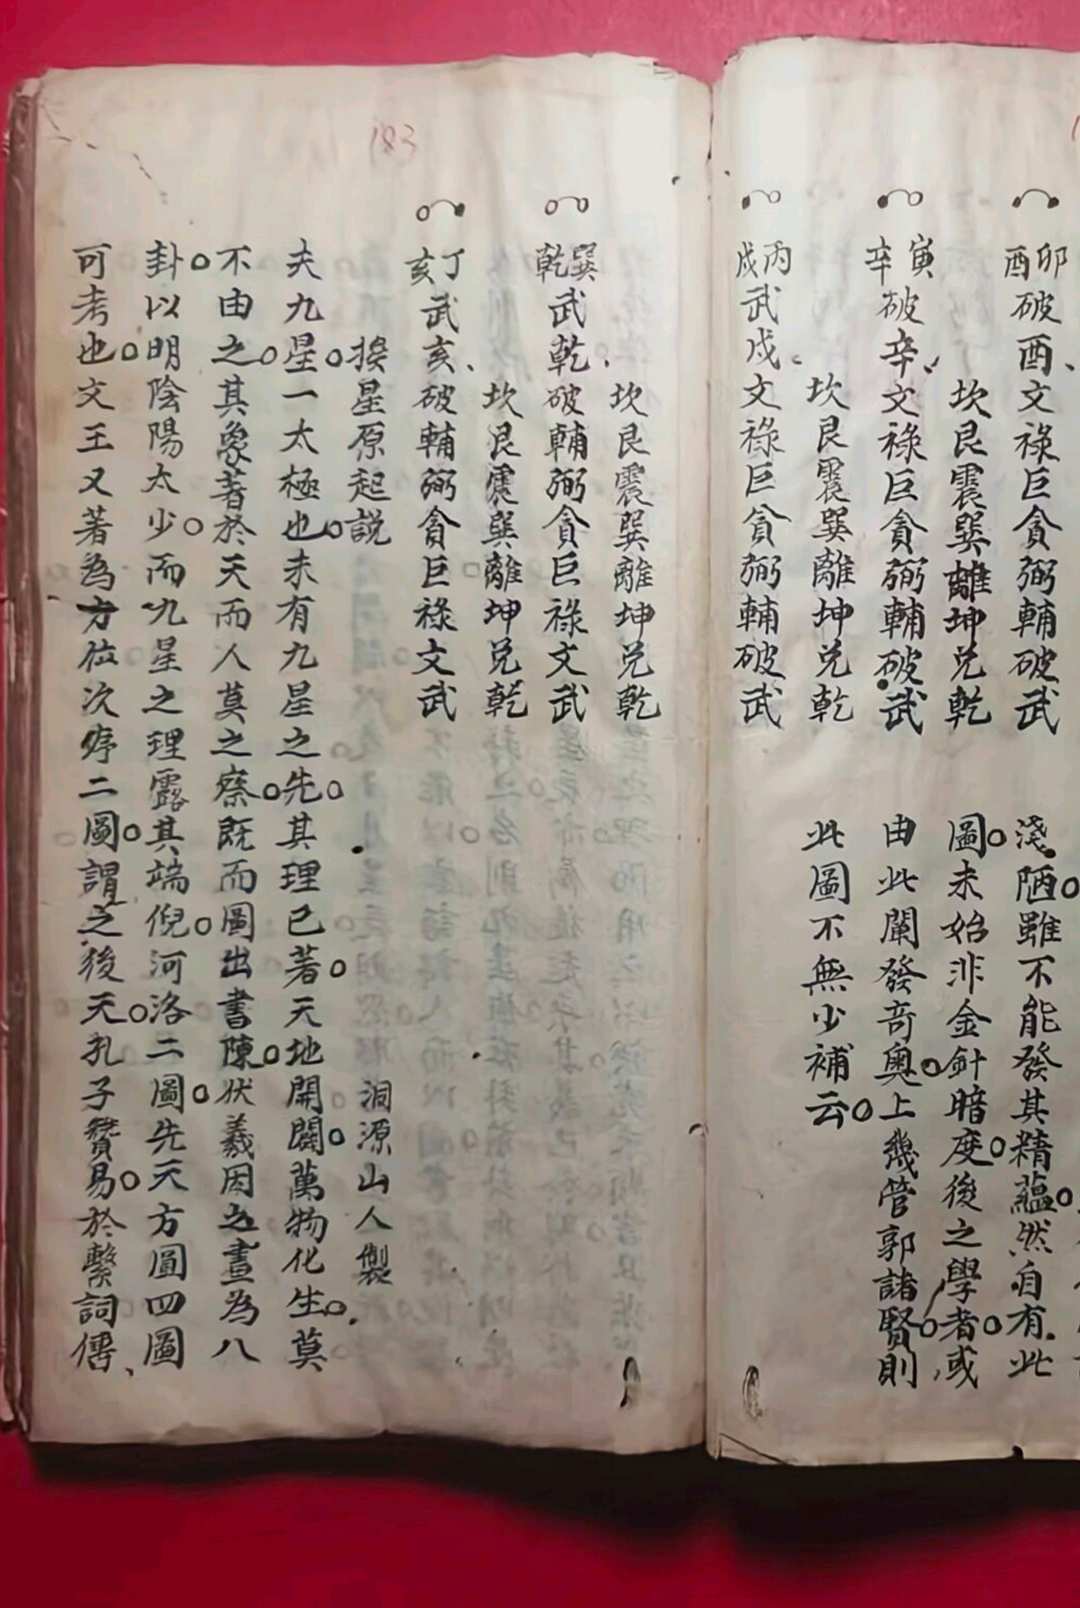 卯酉破酉文祿巨貪弼輔破武
淺陋雖不能發其精蘊然自有此
坎艮震巽離坤兌乾
圖未始非金針暗度後之學者或
寅辛破辛文祿巨貪弼輔破武
由此闡發奇奧上幾管郭諸賢則
坎艮震巽離坤兌乾
此圖不無少補云
丙戌武戌文祿巨貪弼輔破武
183
坎艮震巽離坤兌乾
巽乾武乾破輔弼貪巨祿文武
坎艮震巽離坤兌乾
丁亥武亥破輔弼貪巨祿文武
挨星原起説 洞源山人製
夫九星一太極也未有九星之先其理已著天地開闢萬物化生莫
不由之其象著於天而人莫之察既而圖出書陳伏羲因之畫為八
卦以明陰陽太少而九星之理露其端倪河洛二圖先天方圖四圖
可考也文王又著為方位次序二圖謂之後天孔子贊易於繫詞傳